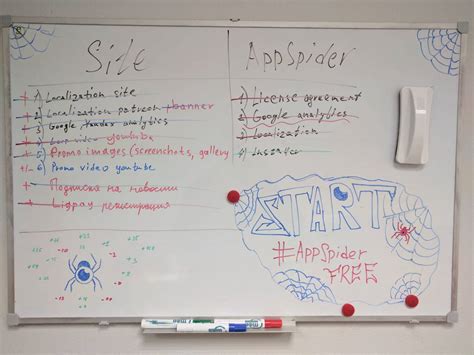 Site
+ 1) Localization site
+ 2) Localization patreon + banner
+ 3) Google + yandex analytics
+ 4) Low video youtube
+ 5) Promo images (screenshots, gallery
+/- 6) Promo video youtube
+ Подписка на новости
+ регистрация
AppSpider
1) License agreement
2) Google analytics
3) Localization
4)
START
#AppSpider
FREE